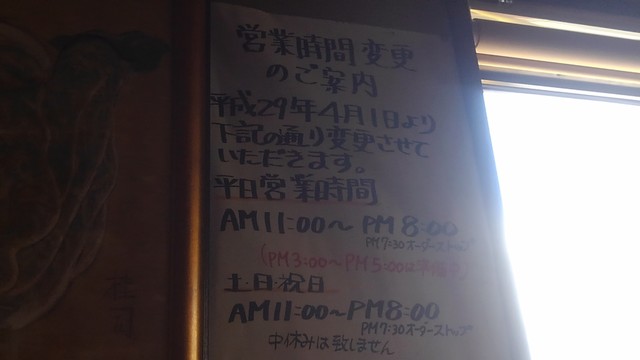 営業時間変更
のご案内
平成29年4月1日より
下記の通り変更させて
いただきます。
平日営業時間
AM11:00〜PM8:00
PM7:30オーダーストップ
(PM3:00〜PM5:00は準備中)
土・日・祝日
AM11:00〜PM8:00
PM7:30オーダーストップ
中休みは致しません